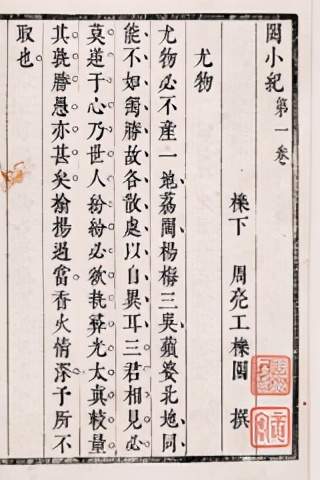 閩小紀 第一卷
櫟下 周亮工櫟園 撰
尤物
尤物必不產一地荔閩楊梅三吳蘋婆北地同
能不如獨勝故各散處以自異耳三君相見必
莫逆于心乃世人紛紛必欲執彝光太真較量
其孰勝愚亦甚矣揄揚過當香火情深予所不
取也